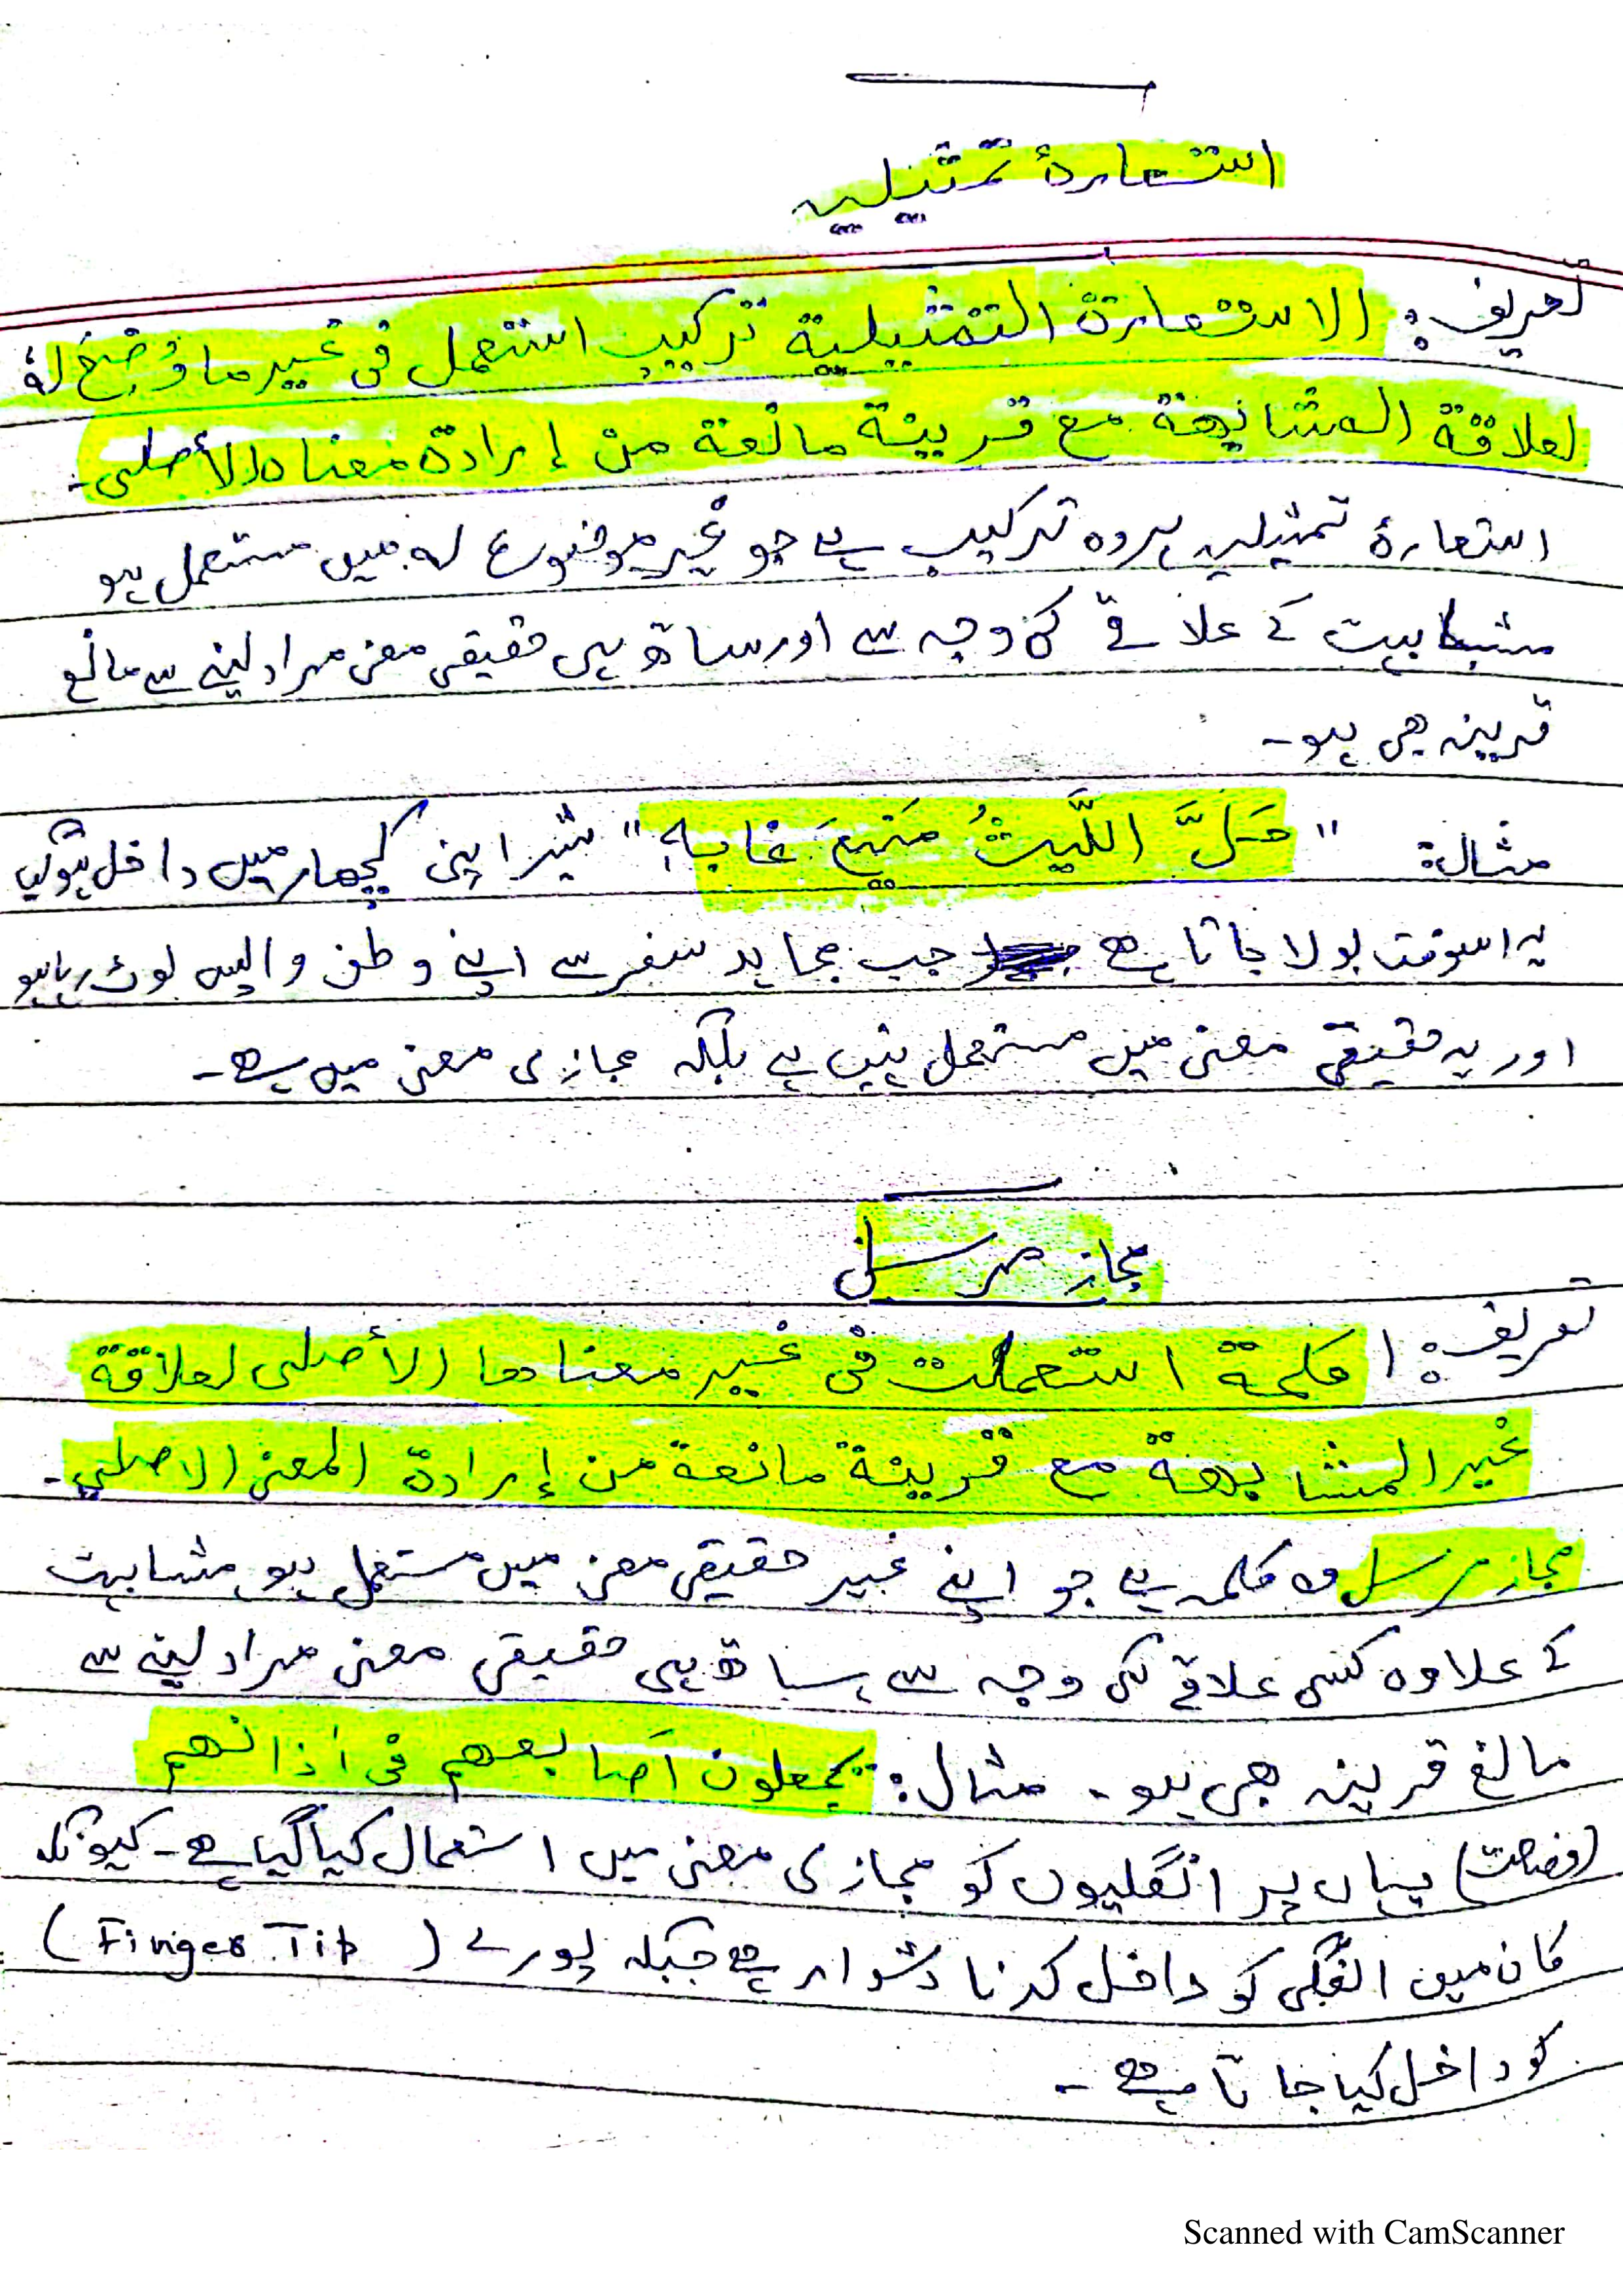 استعارۂ تمثیلیہ
تعریف: الاستعارة التمثيلية تركيب استعمل فی غير ما وُضِعَ لهٗ
لعلاقة المشابهة مع قرينة مانعة من إرادة معناه الأصلى۔
استعارۂ تمثیلیہ ہر وہ ترکیب ہے جو غیر موضوع لہ میں مستعمل ہو
مشابہت کے علاقے کی وجہ سے اور ساتھ ہی حقیقی معنی مراد لینے سے مانع
قرینہ بھی ہو۔
مثال: "حَلَّ اللَّيثُ مَنِيعَ غابهٖ" شیر اپنی کچھار میں داخل ہوگیا
یہ اسوقت بولا جاتا ہے جب مجاہد سفر سے اپنے وطن واپس لوٹ رہا ہو
اور یہ حقیقی معنی میں مستعمل نہیں ہے بلکہ مجازی معنی میں ہے۔
مجاز مرسل
تعریف: كلمة استعملت فی غير معناها الأصلى لعلاقة
غير المشابهة مع قرينة مانعة من إرادة المعنى الاصلي۔
مجاز مرسل وہ کلمہ ہے جو اپنے غیر حقیقی معنی میں مستعمل ہو مشابہت
کے علاوہ کسی علاقے کی وجہ سے، ساتھ ہی حقیقی معنی مراد لینے سے
مانع قرینہ بھی ہو۔ مثال: يجعلون أصابعهم فی أذانهم
(وضاحت) یہاں پر انگلیوں کو مجازی معنی میں استعمال کیا گیا ہے۔ کیونکہ
کان میں انگلی کو داخل کرنا دشوار ہے جبکہ پورے (Finger Tip)
کو داخل کیا جاتا ہے۔
Scanned with CamScanner